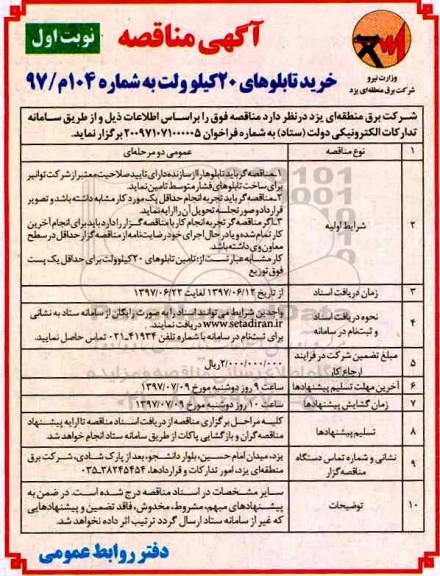 آگهی مناقصه
نوبت اول
وزارت نیرو
شرکت برق منطقه‌ای یزد
خرید تابلوهای ۲۰ کیلو ولت به شماره ۱۰۴م/۹۷
شرکت برق منطقه‌ای یزد درنظر دارد مناقصه فوق را براساس اطلاعات ذیل و از طریق سامانه
تدارکات الکترونیکی دولت (ستاد) به شماره فراخوان ۲۰۰۹۷۱۰۷۱۰۰۰۰۰۵ برگزار نماید.
۱ نوع مناقصه عمومی دو مرحله‌ای
۲ شرایط اولیه
۱-مناقصه‌گر باید تابلوها را از سازنده دارای تایید صلاحیت معتبر از شرکت توانیر
برای ساخت تابلوهای فشار متوسط تامین نماید.
۲-مناقصه‌گر باید تجربه انجام حداقل یک مورد کار مشابه داشته باشد و تصویر
قرارداد و صورتجلسه تحویل آن را ارایه نماید.
۳-اگر مناقصه‌گر تجربه انجام کار با مناقصه‌گزار را دارد باید برای انجام آخرین
کار تمام شده و یا در حال اجرای خود رضایت‌نامه از مناقصه‌گزار حداقل در سطح
معاون وی داشته باشد.
کار مشابه عبارتست از: تامین تابلوهای ۲۰ کیلوولت برای حداقل یک پست
فوق توزیع
۳ زمان دریافت اسناد از تاریخ ۱۳۹۷/۰۶/۱۲ لغایت ۱۳۹۷/۰۶/۲۲
۴ نحوه دریافت اسناد و ثبت‌نام در سامانه
واجدین شرایط می‌توانند اسناد را به صورت رایگان از سامانه ستاد به نشانی
www.setadiran.ir دریافت نمایند.
برای ثبت‌نام در سامانه با شماره تلفن ۴۱۹۳۴-۰۲۱ تماس حاصل نمایید.
۵ مبلغ تضمین شرکت در فرایند ارجاع کار ۲/۰۰۰/۰۰۰/۰۰۰ ریال
۶ آخرین مهلت تسلیم پیشنهادها ساعت ۹ روز دوشنبه مورخ ۱۳۹۷/۰۷/۰۹
۷ زمان گشایش پیشنهادها ساعت ۱۰ روز دوشنبه مورخ ۱۳۹۷/۰۷/۰۹
۸ تسلیم پیشنهادها
کلیه مراحل برگزاری مناقصه از دریافت اسناد مناقصه تا ارایه پیشنهاد
مناقصه‌گران و بازگشایی پاکات از طریق سامانه ستاد انجام خواهد شد.
۹ نشانی و شماره تماس دستگاه مناقصه‌گزار
یزد، میدان امام حسین، بلوار دانشجو، بعد از پارک شادی، شرکت برق
منطقه‌ای یزد، امور تدارکات و قراردادها، ۳۸۲۴۵۴۵۴-۰۳۵
۱۰ توضیحات
سایر مشخصات در اسناد مناقصه درج شده است. در ضمن به
پیشنهادهای مبهم، مشروط، مخدوش، فاقد تضمین و پیشنهادهایی
که غیر از سامانه ستاد ارسال گردد ترتیب اثر داده نخواهد شد.
دفتر روابط عمومی